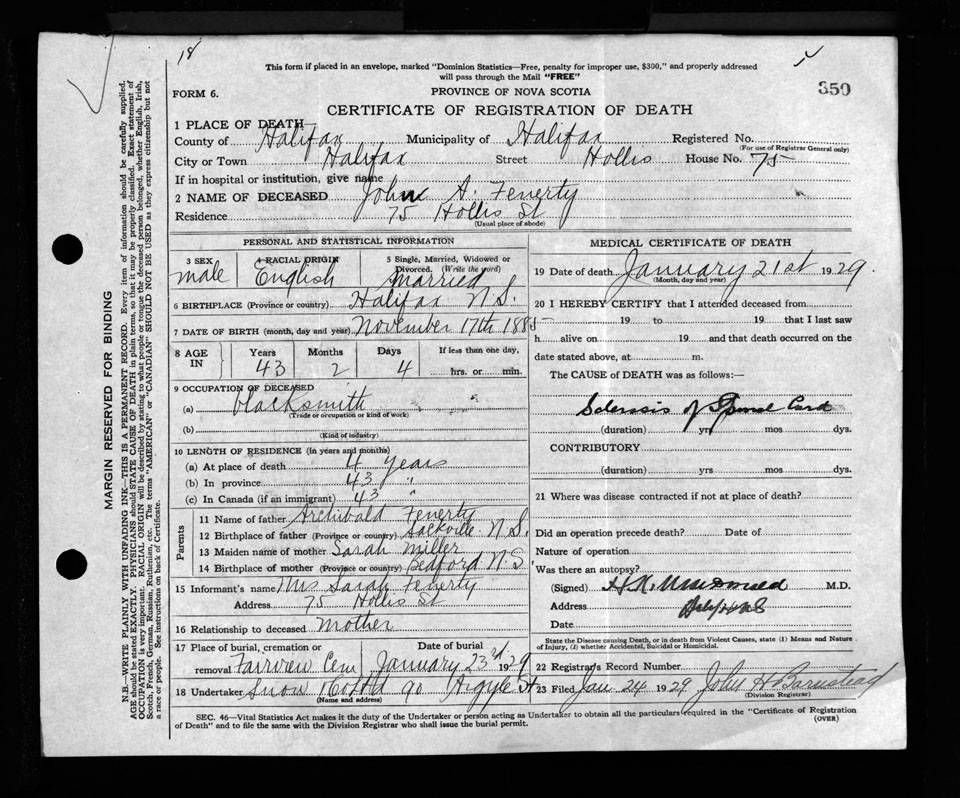 18
This form if placed in an envelope, marked "Dominion Statistics—Free, penalty for improper use, $300," and properly addressed
will pass through the Mail "FREE"
350
FORM 6.
PROVINCE OF NOVA SCOTIA
CERTIFICATE OF REGISTRATION OF DEATH
1 PLACE OF DEATH—
County of Halifax Municipality of Halifax Registered No.
(For use of Registrar General only)
City or Town Halifax Street Hollis House No. 75
If in hospital or institution, give name
2 NAME OF DECEASED John A. Fenerty
Residence 75 Hollis St
(Usual place of abode)
PERSONAL AND STATISTICAL INFORMATION
3 SEX male
4 RACIAL ORIGIN English
5 Single, Married, Widowed or Divorced. (Write the word) Married
6 BIRTHPLACE (Province or country) Halifax N.S.
7 DATE OF BIRTH (month, day and year) November 17th 1885
8 AGE IN Years 43 Months 2 Days 4 If less than one day, hrs. or min.
9 OCCUPATION OF DECEASED
(a) blacksmith
(Trade or occupation or kind of work)
(b)
(Kind of industry)
10 LENGTH OF RESIDENCE (in years and months)
(a) At place of death 4 years
(b) In province 43 "
(c) In Canada (if an immigrant) 43 "
Parents
11 Name of father Archibald Fenerty
12 Birthplace of father (Province or country) Sackville N.S.
13 Maiden name of mother Sarah Miller
14 Birthplace of mother (Province or country) Bedford N.S
15 Informant's name Mrs Sarah Fenerty
Address 75 Hollis St
16 Relationship to deceased Mother
17 Place of burial, cremation or removal Fairview Cem
Date of burial January 23rd 1929
18 Undertaker Snow & Co Ltd 90 Argyle St
(Name and address)
MEDICAL CERTIFICATE OF DEATH
19 Date of death January 21st 1929.
(Month, day and year)
20 I HEREBY CERTIFY that I attended deceased from
19 to 19 that I last saw
h alive on 19 and that death occurred on the
date stated above, at m.
The CAUSE of DEATH was as follows:—
Sclerosis of Spinal Cord
(duration) yrs mos dys.
CONTRIBUTORY
(duration) yrs mos dys.
21 Where was disease contracted if not at place of death?
Did an operation precede death? Date of
Nature of operation
Was there an autopsy?
(Signed) H.K. MacDonald M.D.
Address Halifax N S
Date
State the Disease causing Death, or in death from Violent Causes, state (1) Means and Nature
of Injury, (2) whether Accidental, Suicidal or Homicidal.
22 Registrar's Record Number
23 Filed Jan 24 1929 John H Barnstead
(Division Registrar)
SEC. 46—Vital Statistics Act makes it the duty of the Undertaker or person acting as Undertaker to obtain all the particulars required in the "Certificate of Registration
of Death" and to file the same with the Division Registrar who shall issue the burial permit.
(OVER)
MARGIN RESERVED FOR BINDING
N.B.—WRITE PLAINLY WITH UNFADING INK—THIS IS A PERMANENT RECORD. Every item of information should be carefully supplied.
AGE should be stated EXACTLY. PHYSICIANS should STATE CAUSE OF DEATH in plain terms, so that it may be properly classified. Exact statement of
OCCUPATION is very important. RACIAL ORIGIN will be described by stating to what people or tongue the deceased person belonged, whether English, Irish,
Scotch, French, German, Russian, Ruthenian, etc. The terms "AMERICAN" or "CANADIAN" SHOULD NOT BE USED as they express citizenship but not
a race or people. See instructions on back of Certificate.